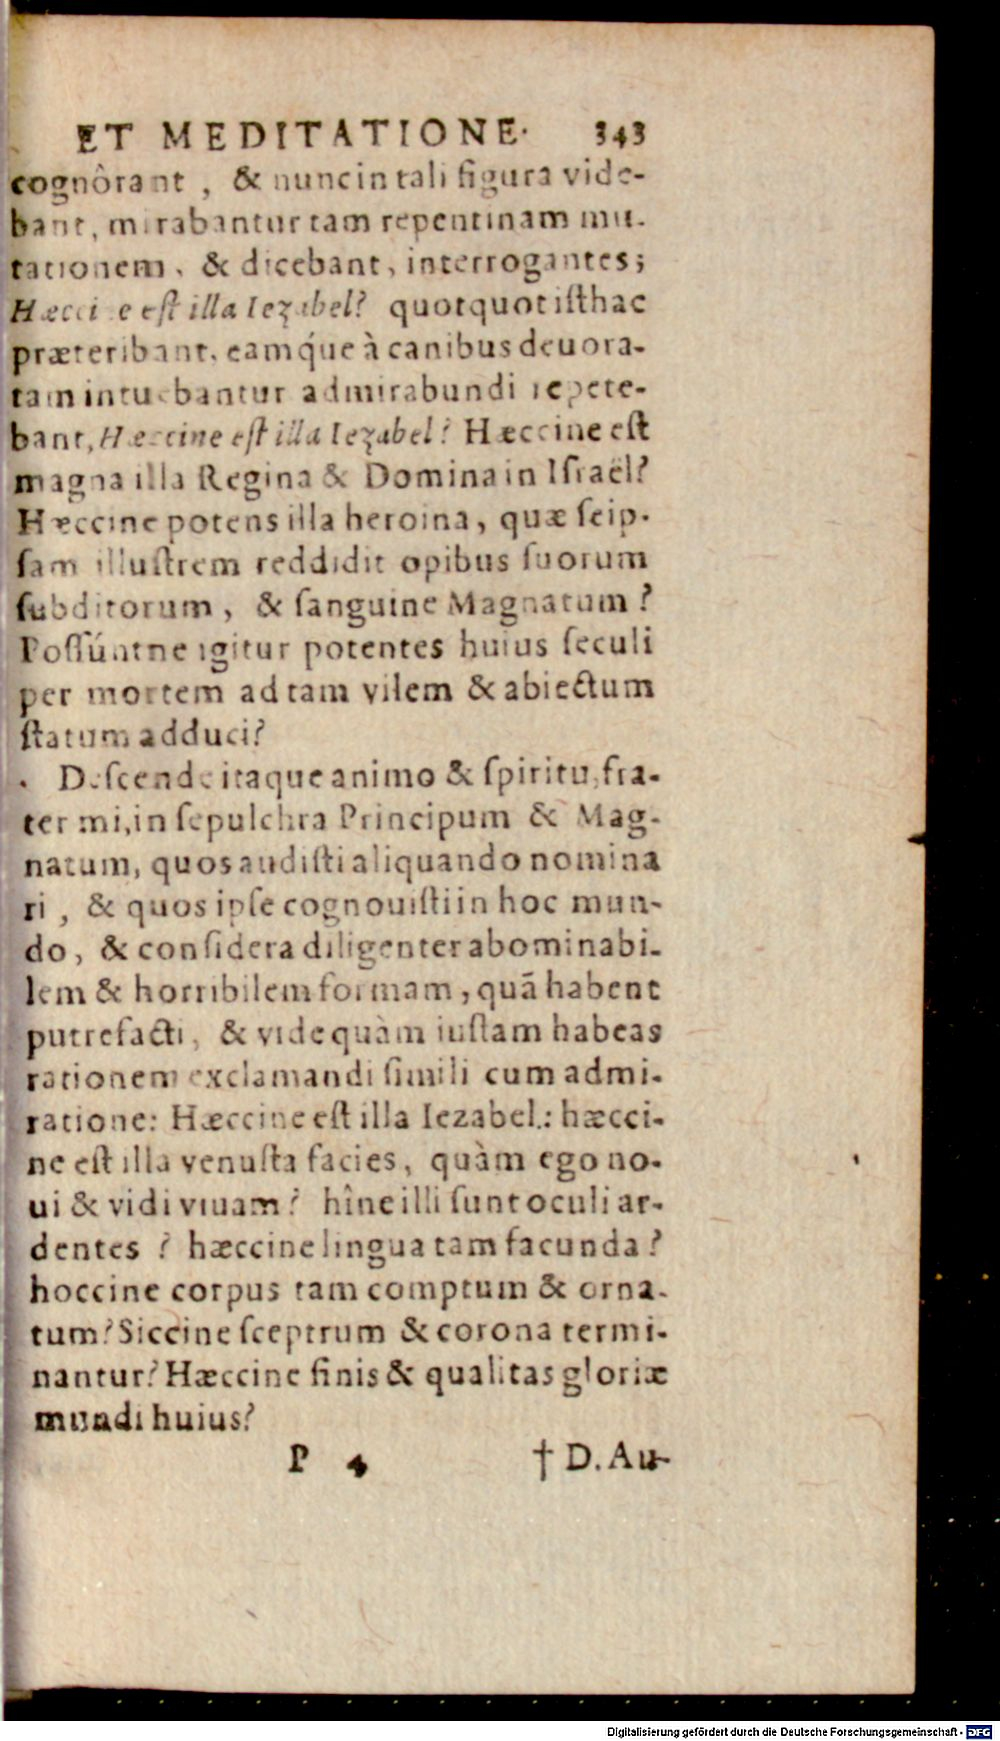 ET MEDITATIONE. 343
cognôrant , & nunc in tali figura vide-
bant, mirabantur tam repentinam mu-
tationem, & dicebant, interrogantes;
Hæccine eſt illa Iezabel? quotquot iſthac
præteribant, eamq́ue à canibus deuora-
tam intuebantur admirabundi repete-
bant, Hæccine eſt illa Iezabel? Hæccine eſt
magna illa Regina & Domina in Iſraël?
Hæccine potens illa heroina, quæ ſeip-
ſam illuſtrem reddidit opibus ſuorum
ſubditorum, & ſanguine Magnatum?
Poſſúntne igitur potentes huius ſeculi
per mortem ad tam vilem & abiectum
ſtatum adduci?
Deſcende itaque animo & ſpiritu, fra-
ter mi, in ſepulchra Principum & Mag-
natum, quos audiſti aliquando nomina
ri, & quos ipſe cognouiſti in hoc mun-
do, & conſidera diligenter abominabi-
lem & horribilem formam, quã habent
putrefacti, & vide quàm iuſtam habeas
rationem exclamandi ſimili cum admi-
ratione: Hæccine eſt illa Iezabel.: hæcci-
ne eſt illa venuſta facies, quàm ego no-
ui & vidi viuam? hîne illi ſunt oculi ar-
dentes ? hæccine lingua tam facunda?
hoccine corpus tam comptum & orna-
tum? Siccine ſceptrum & corona termi-
nantur? Hæccine finis & qualitas gloriæ
mundi huius?
P 4 † D. Au-
Digitalisierung gefördert durch die Deutsche Forschungsgemeinschaft - DFG